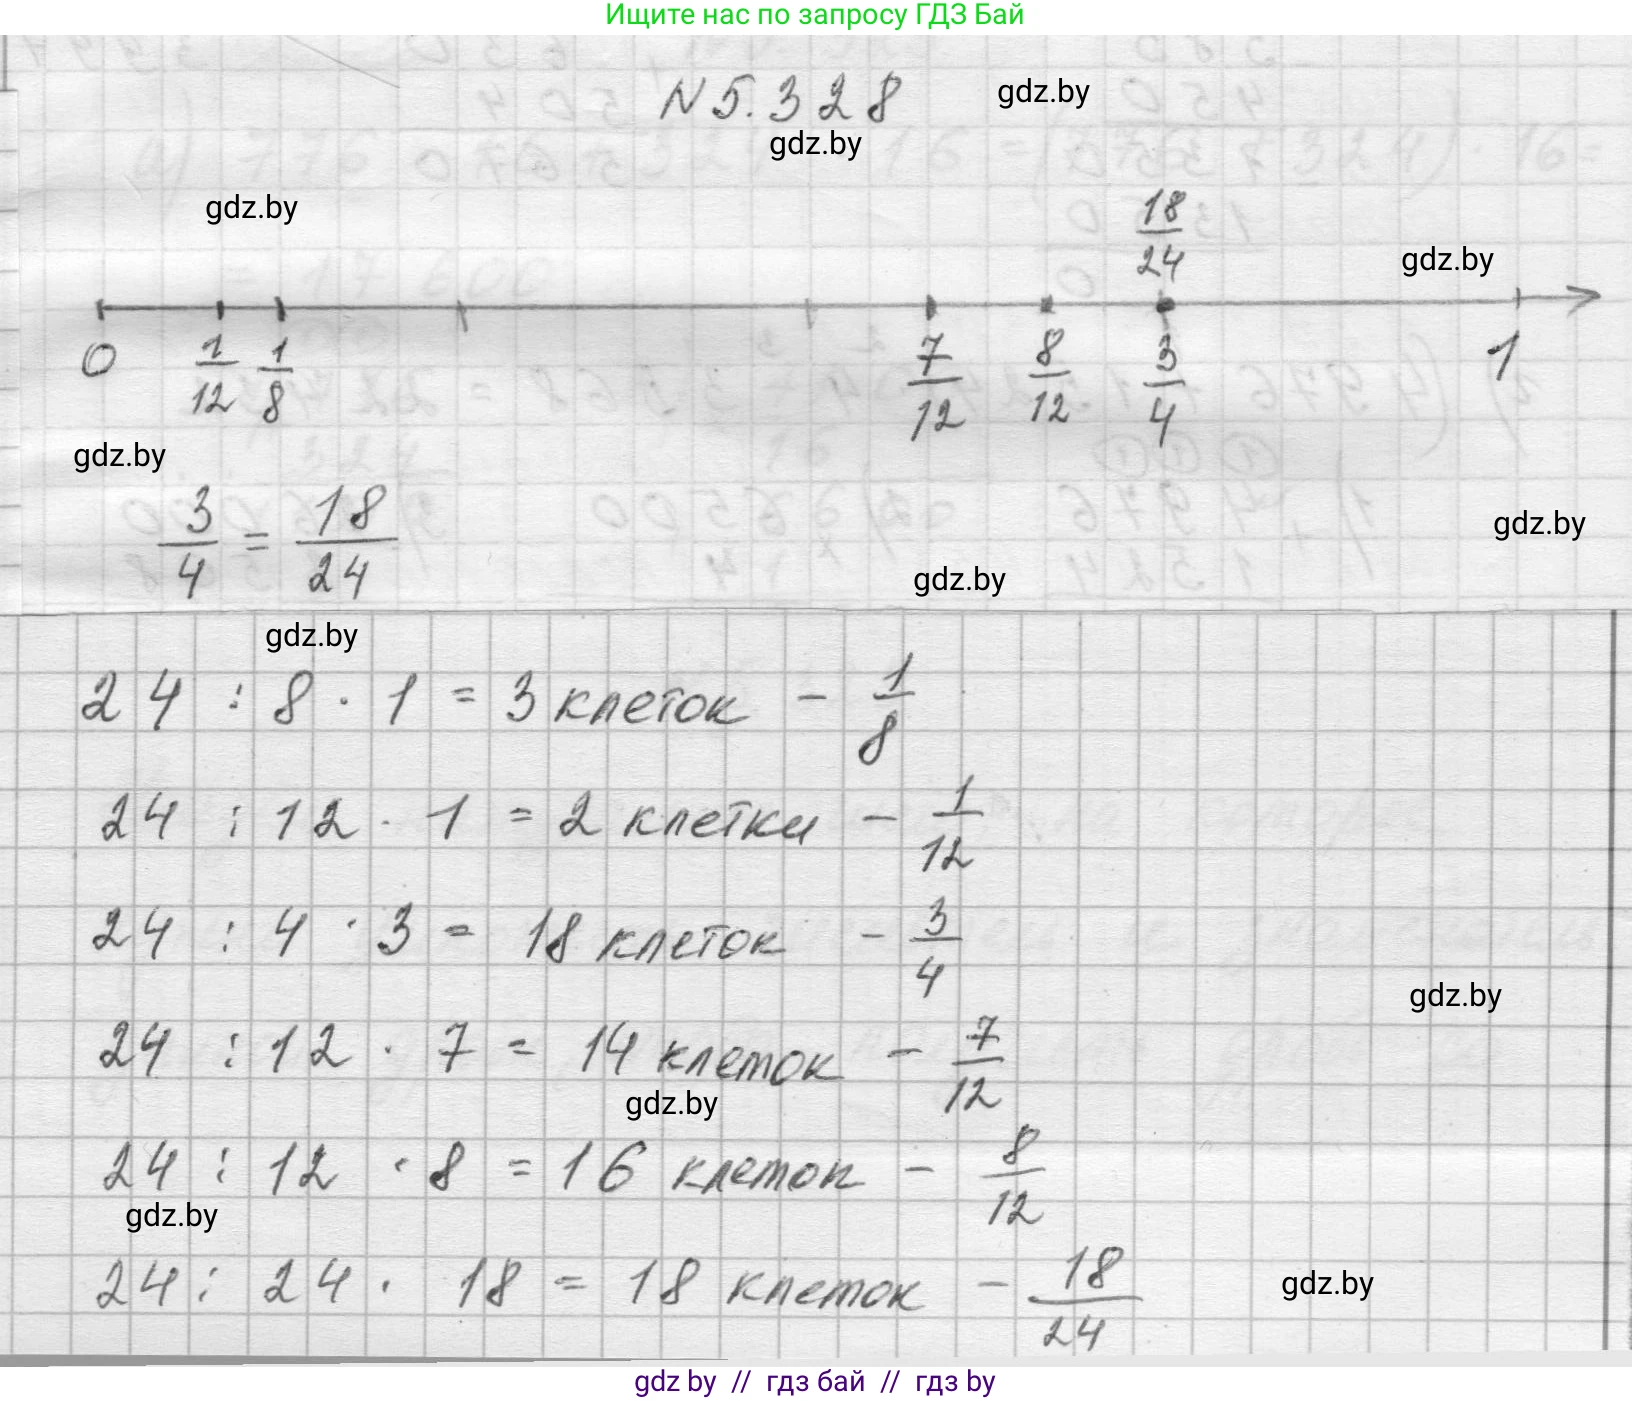 Ищите нас по запросу ГДЗ Бай
N 5.328
gdz.by
gdz.by
gdz.by
18/24
gdz.by
0 1/12 1/8 7/12 8/12 3/4 1
gdz.by
3/4 = 18/24
gdz.by
gdz.by
gdz.by
24 : 8 · 1 = 3 клеток - 1/8
24 : 12 · 1 = 2 клетки - 1/12
24 : 4 · 3 = 18 клеток - 3/4
gdz.by
24 : 12 · 7 = 14 клеток - 7/12
gdz.by
24 : 12 · 8 = 16 клеток - 8/12
gdz.by
24 : 24 · 18 = 18 клеток - 18/24
gdz.by
gdz by // гдз бай // гдз by